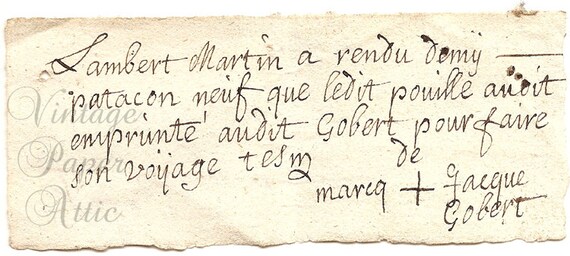 Lambert Martin a rendu demij
patacon neuf que ledit pouille avoit
emprunté audit Gobert pour faire
son voijage tesm
de
marcq + Jacque
Gobert
Vintage
Paper
Attic